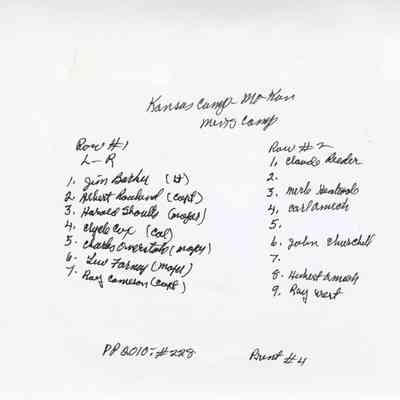 Kansas Camp Mo Kan
Mens Camp
Row #1
L-R
1. Jim Barker (Lt)
2. Albert Rowland (capt)
3. Harold Shoults (major)
4. Clyde Cox (Col)
5. Charles (major)
6. Farney (major)
7. Ray Cameron (capt)
Row #2
1. Claude Reeder
2.
3. Merle
4. Carl Amich
5.
6. John Churchill
7.
8. Hubert Amich
9. Ray West
PP 2010: #228
Print #4